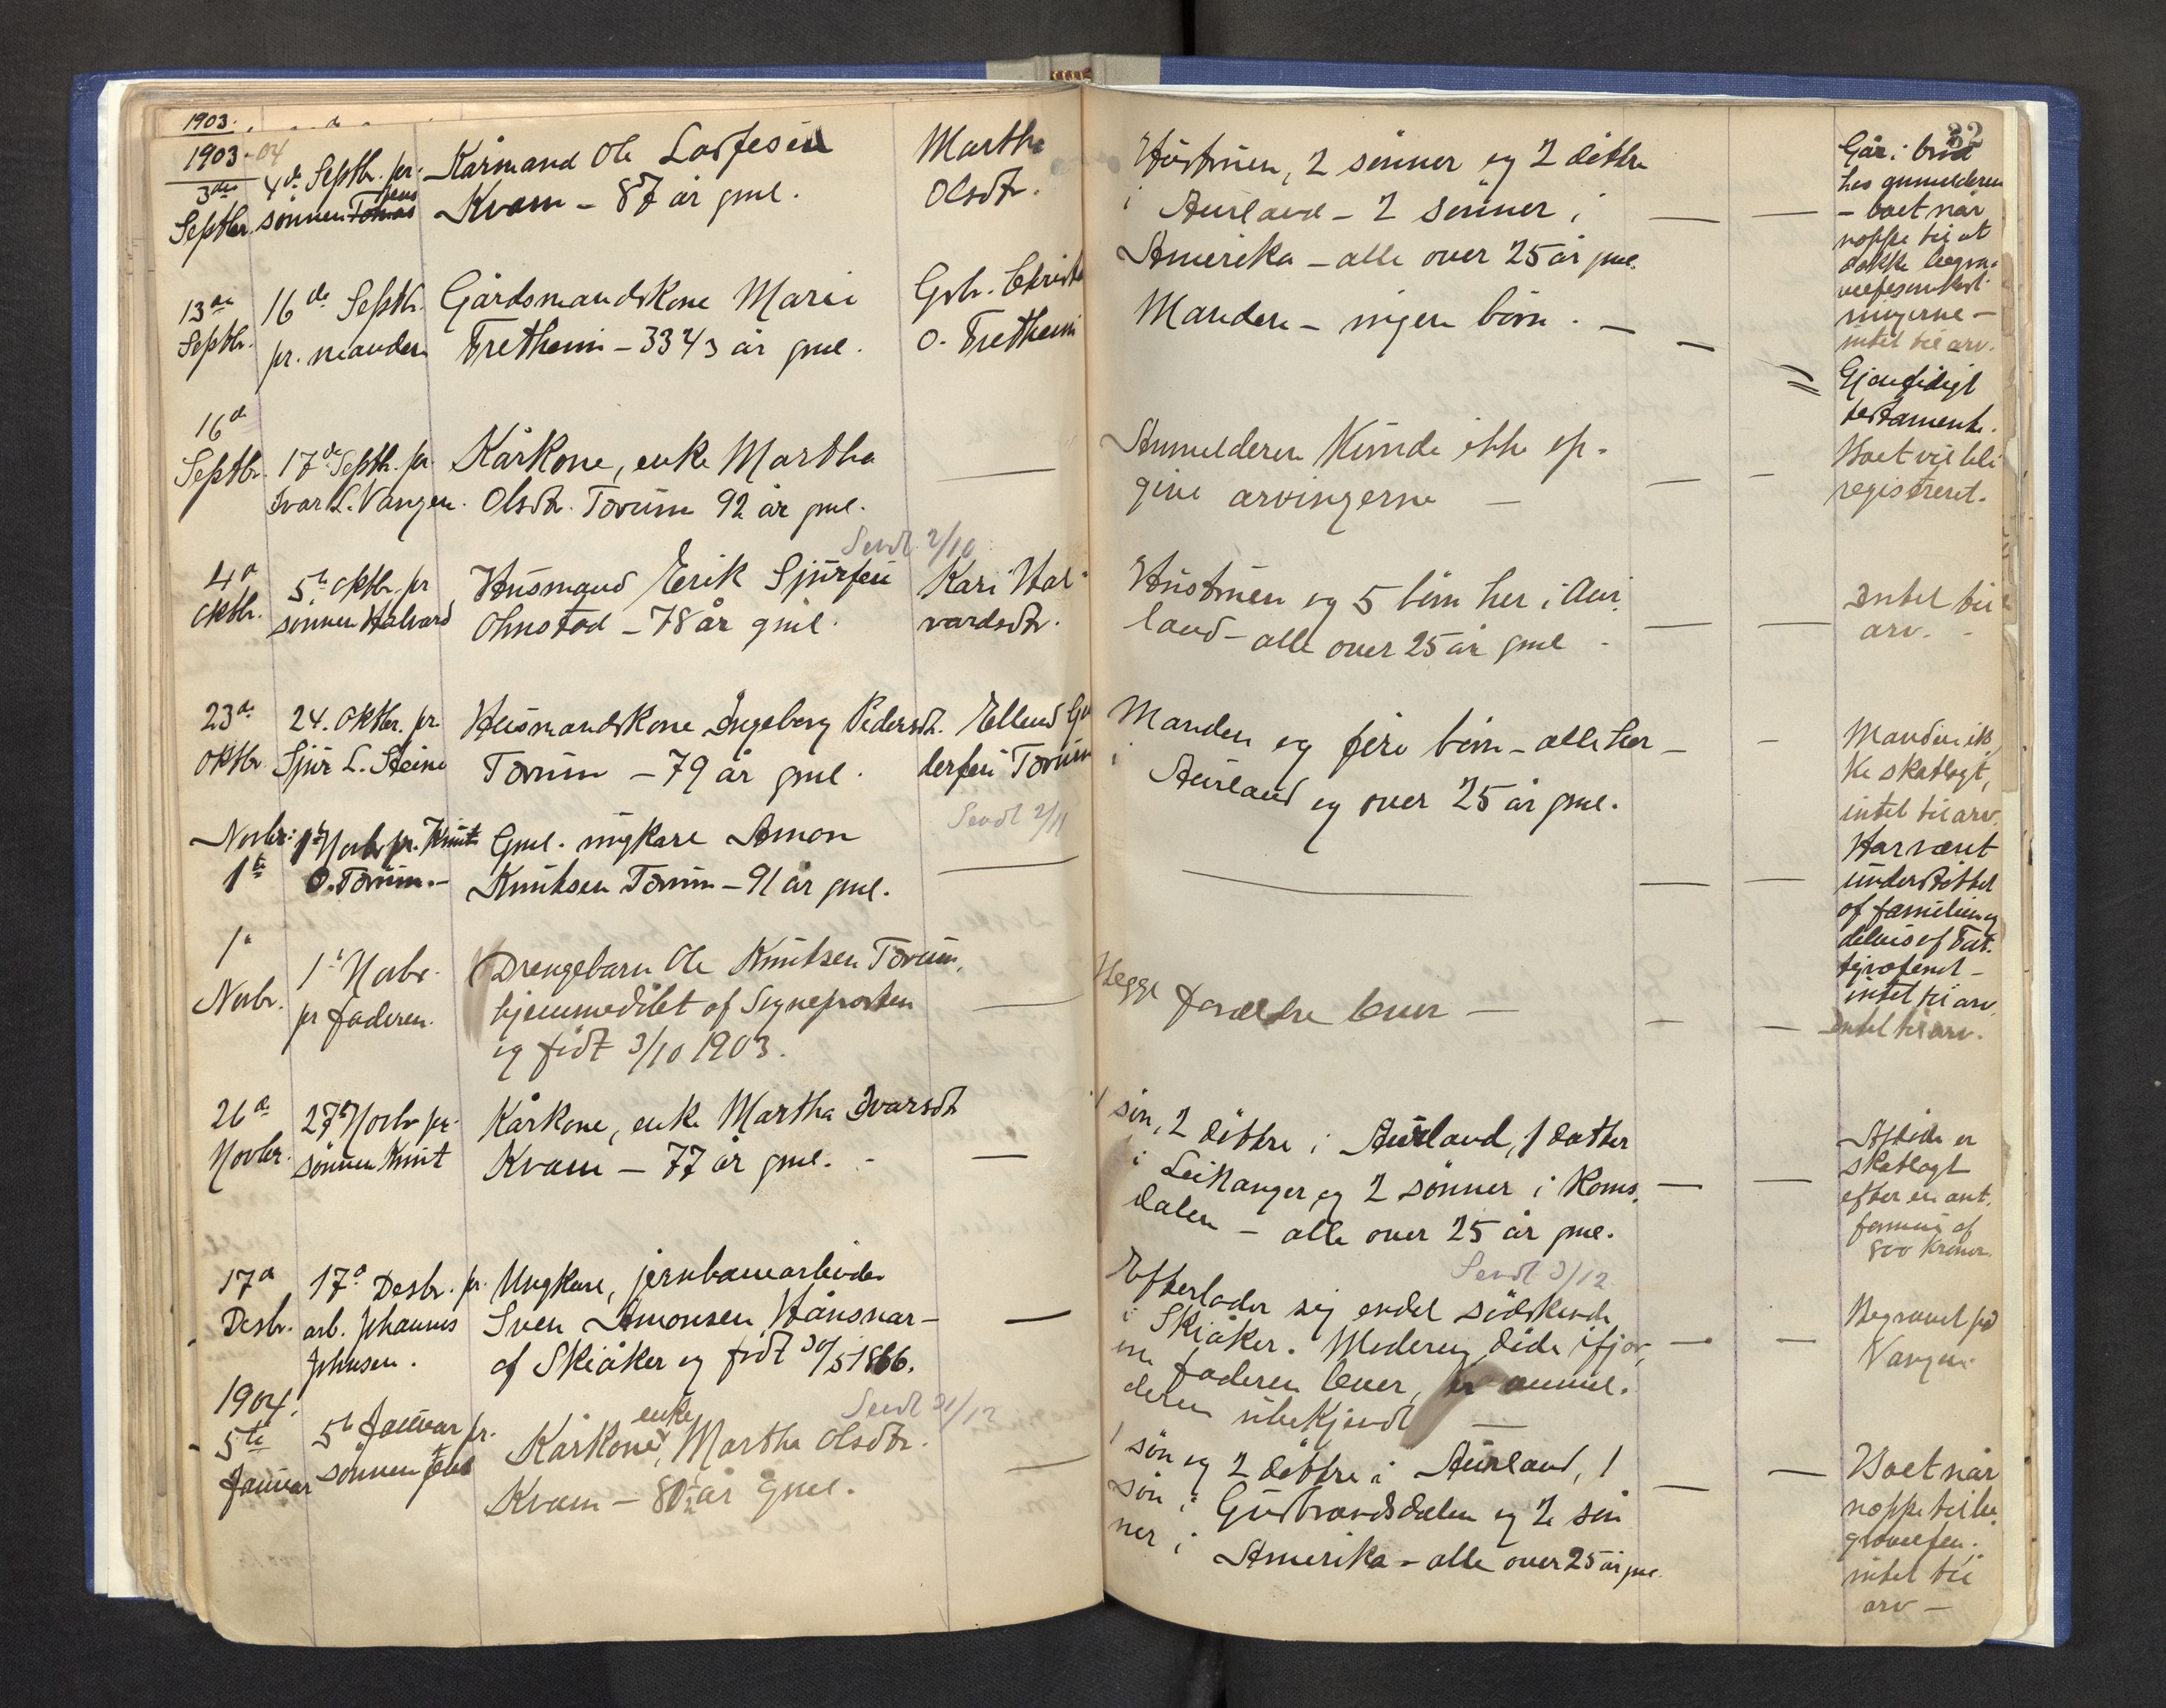 1903.
1903-04
3die Septbr.
4de Septbr. pr.
sønnen Jens
Kårmand Ole Ladfesen
Kvam - 87 år gml.
Martha
Olsdtr.
Hustruen, 2 sønner og 2 døttre
i Aurland - 2 sønner i
Amerika - alle over 25 år gml.
32
Går i brød
hos anmelderen
- boet når
noppe til at
dække begra-
velsesomkost-
ningerne -
intet til arv.
13de Septbr.
16de Septbr.
pr. manden
Gårdsmandskone Mari
Fretheim - 33 2/3 år gml.
Gbr. Christ
O. Fretheim
Manden - ingen børn. -
Gjensidigt
testamente.
16de
Septbr.
17de Septb. pr
Ivar L. Vangen.
Kårkone, enke Martha
Olsdtr. Torvim 92 år gml.
Anmelderen kunde ikke op-
give arvingerne -
Boet vil bli
registreret.
Sendt 2/10
4de
Oktbr.
5te Oktbr. pr
sønnen Halvard
Husmand Erik Sjursen
Ohnstad - 78 år gml.
Kari Hal-
vardsdtr.
Hustruen og 5 børn her i Aur-
land - alle over 25 år gml -
Intet til
arv. -
23de
Oktbr.
24. Oktbr. pr.
Sjur L. Steine
Husmandskone Ingeborg Pedersdt.
Torvim - 79 år gml.
Ellend Gu
dersen Torvim
Manden og fire børn - alle her
i Aurland og over 25 år gml.
Manden ik-
ke skatlagt,
intet til arv.
Sendt 2/11
Novbr:
1te
1te Novbr pr. Knut
O. Torvim. -
Gml. ungkare Amon
Knutsen Torvim - 91 år gml.
Har været
understøttet
af familien og
delvis af Fat-
tigvæsenet -
intet til arv.
1te
Novbr.
1te Novbr.
pr faderen.
Drengebarn Ole Knutsen Torvim,
hjemmedøbt af Sogneprosten
og født 3/10 1903.
Begge forældre lever -
Intet til arv.
26de
Novbr.
27de Novbr pr.
sønnen Knut
Kårkone, enke Martha Ivarsdtr
Kvam - 77 år gml. -
1 søn, 2 døttre i Aurland, 1 datter
i Leikanger og 2 sønner i Roms-
dalen - alle over 25 år gml.
Afdøde er
skatlagt
efter en ant.
formue af
800 kroner.
Sendt 3/12
17de
Desbr.
17de Desbr. pr.
arb. Johannes
Johnsen.
Ungkare, jernbanearbeider
Sven Amonsen Hånsnar-
af Skiåker og født 30/5 1866.
Efterlader sig endel sødskende
i Skiåker. Moderen døde ifjor,
om faderen lever, er anmel-
deren ubekjendt -
Begravet på
Vangen.
Sendt 31/12
1904.
5te
Januar
5te Januar pr.
sønnen Jens
Kårkone, enke, Martha Olsdtr.
Kvam - 80 1/2 år gml.
1 søn og 2 døttre i Aurland, 1
søn i Gudbrandsdalen og 2 søn
ner i Amerika - alle over 25 år gml.
Boet når
noppe til be-
gravelsen.
intet til
arv -